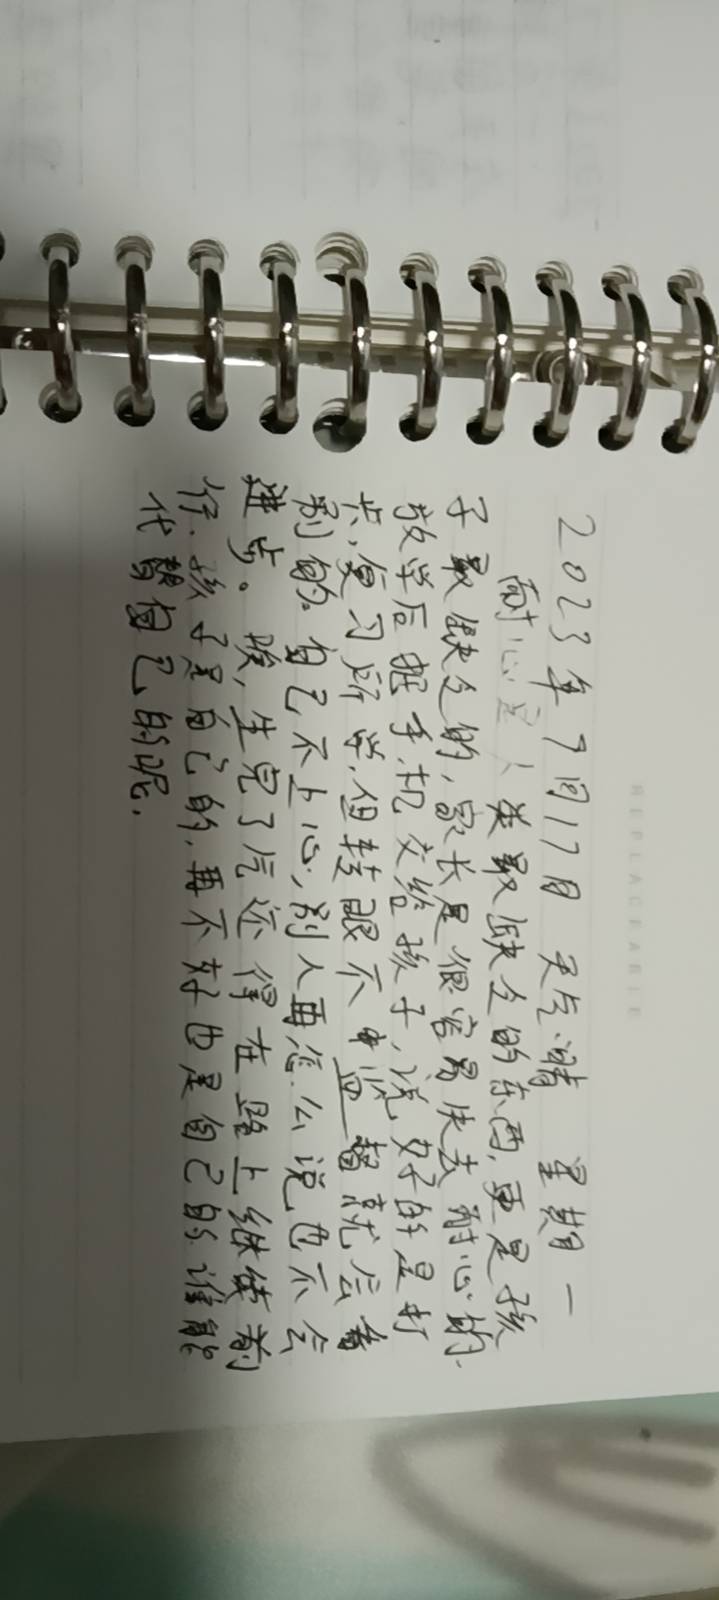 REPLACEABLE
2023年7月17日 天气:晴 星期一
耐心是人类最缺乏的东西,更是孩
子最缺乏的,家长是很容易失去耐心的.
放学后把手机交给孩子,说好的是打
卡,复习所学,但转眼不中监督就会看
别的。自己不上心,别人再怎么说也不会
进步。唉,生完了气还得在路上继续前
行.孩子是自己的,再不好也是自己的.谁能
代替自己的呢.